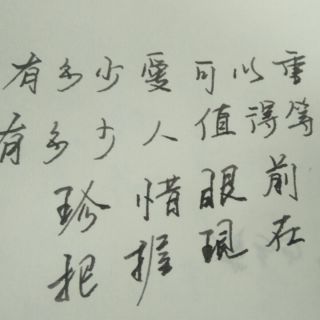 有多少愛可以重
有多少人值得等
珍惜眼前
把握現在